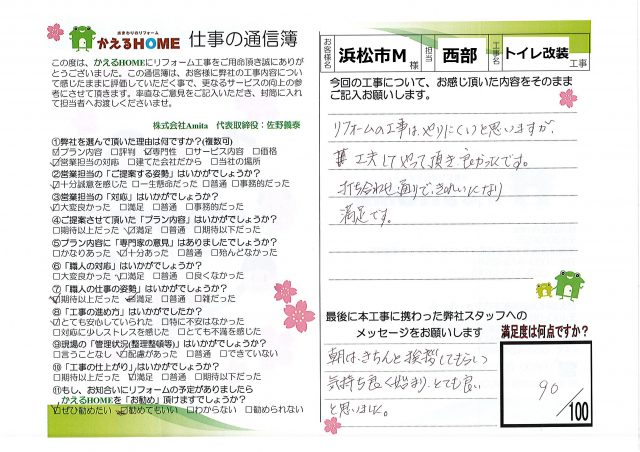 水まわりのリフォーム
かえるHOME 仕事の通信簿
この度は、かえるHOMEにリフォーム工事をご用命頂き誠にありが
とうございました。この通信簿は、お客様に弊社の工事内容につい
て感じたままに評価していただく事で、更なるサービスの向上の参
考にさせて頂きます。率直なご意見をご記入いただき、封筒に入れ
て担当者へお渡しくださいませ。
株式会社Amita 代表取締役：佐野義泰
①弊社を選んで頂いた理由は何ですか?(複数可)
☑プラン内容 □評判 ☑専門性 □サービス内容 □価格
☑営業担当の対応 □建てた会社だから □当社の場所
②営業担当の「ご提案する姿勢」はいかがでしょうか?
☑十分誠意を感じた □一生懸命だった □普通 □事務的だった
③営業担当の「対応」はいかがでしょうか?
☑大変良かった □満足 □普通 □事務的だった
④ご提案させて頂いた「プラン内容」はいかがでしょうか?
□期待以上だった ☑満足 □普通 □期待以下だった
⑤プラン内容に「専門家の意見」はありましたでしょうか?
□かなりあった ☑十分あった □普通 □殆んどなかった
⑥「職人の対応」はいかがでしょうか?
□大変良かった ☑満足 □普通 □良くなかった
⑦「職人の仕事の姿勢」はいかがでしょうか?
☑期待以上だった ☑満足 □普通 □雑だった
⑧「工事の進め方」はいかがでしたか?
☑とても安心していられた □特に不安はなかった
□対応に少しストレスを感じた □とても不満を感じた
⑨現場の「管理状況(整理整頓等)」はいかがでしょうか?
□言うことなし ☑配慮があった □できていない
⑩「工事の仕上がり」はいかがでしょうか?
□期待以上だった ☑満足 □普通 □期待以下だった
⑪もし、お知合いにリフォームの予定がありましたら
かえるHOMEを「お勧め」頂けますでしょうか?
☑ぜひ勧めたい ☑勧めてもいい □わからない □勧められない
お客様名 浜松市M 様 担当 西部 工事名 トイレ改装 工事
今回の工事について、お感じ頂いた内容をそのまま
ご記入お願いします。
リフォームの工事は、やりにくいと思いますが、
工夫してやって頂き良かったです。
打ち合わせ通りで、きれいになり
満足です。
最後に本工事に携わった弊社スタッフへの
メッセージをお願いします
朝は、きちんと挨拶してもらい
気持ち良く始まり、とても良い
と思いました。
満足度は何点ですか?
90
/100